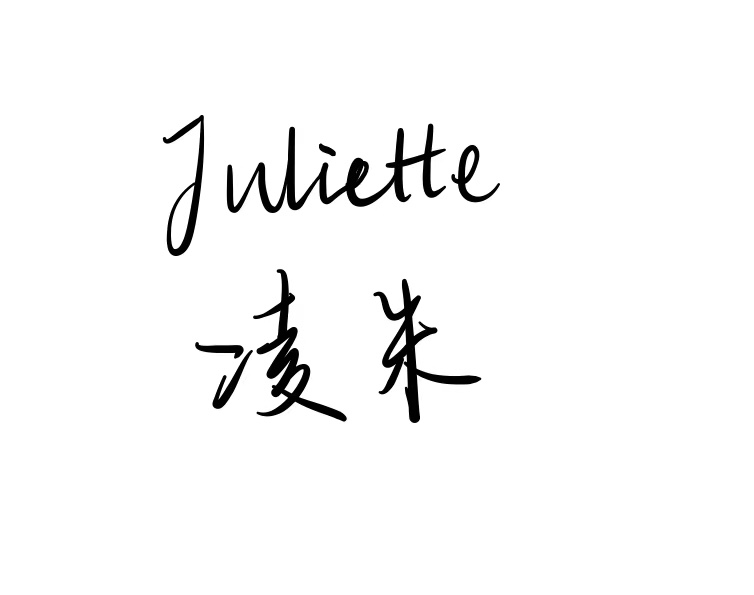 Juliette
凌朱